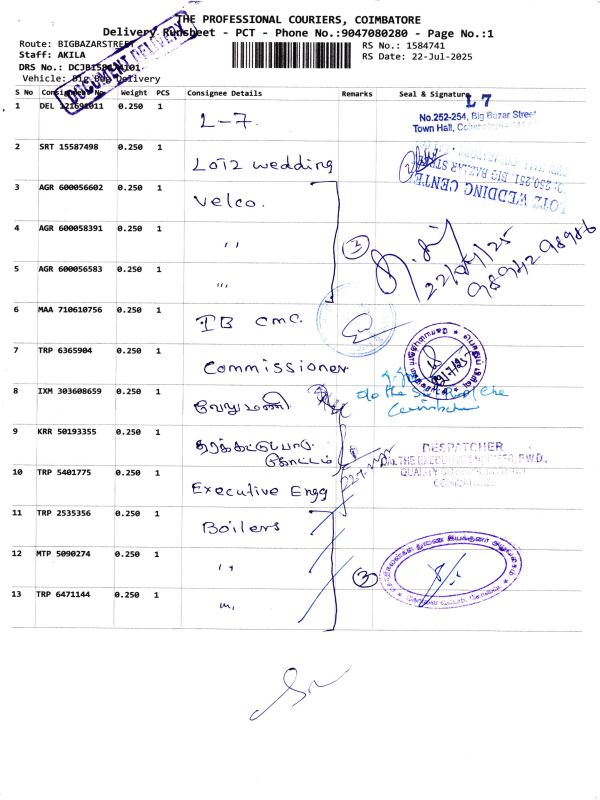 THE PROFESSIONAL COURIERS, COIMBATORE
Delivery Runsheet - PCT - Phone No.:9047080280 - Page No.:1
Route: BIGBAZARSTREET
RS No.: 1584741
Staff: AKILA
RS Date: 22-Jul-2025
DRS No.: DCJB158474101
Vehicle: Big Bag Delivery
DOCUMENT DELIVERY
S No Consignment No Weight PCS Consignee Details Remarks Seal & Signature
1 DEL 121691011 0.250 1 L-7.
L 7
No.252-254, Big Bazar Street
Town Hall,
2 SRT 15587498 0.250 1 LOTZ wedding
LOTZ WEDDING CENTER
250,251, BIG BAZAAR STREET
3 AGR 600056602 0.250 1 Velco.
4 AGR 600058391 0.250 1 ,,
3
22/07/25
98942 98986
5 AGR 600056583 0.250 1 ,,,
6 MAA 710610756 0.250 1 IB CMC.
7 TRP 6365904 0.250 1 Commissioner
8 IXM 303608659 0.250 1 வேலுமணி
o/o the
9 KRR 50193355 0.250 1 தரக்கட்டுப்பாடு
கோட்டம்
DESPATCHER
THE EXECUTIVE ENGINEER, P.W.D.,
QUALITY
10 TRP 5401775 0.250 1 Executive Engg
11 TRP 2535356 0.250 1 Boilers
12 MTP 5090274 0.250 1 ,,
3
13 TRP 6471144 0.250 1 ,,,